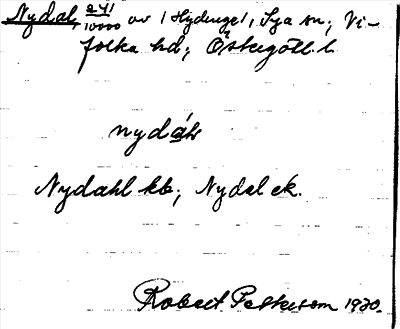 Nydal, 241/10000 av 1 Hydinge1, Sya sn; Vi-
folka hd; Östergötl. l.
nydáɫv
Nydahl kb; Nydal ek.
Robert Petterson 1920.